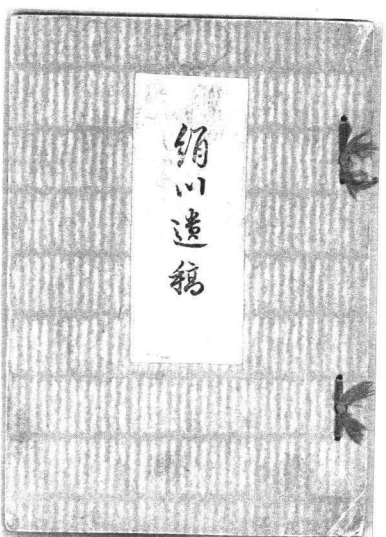 絹川遺稿